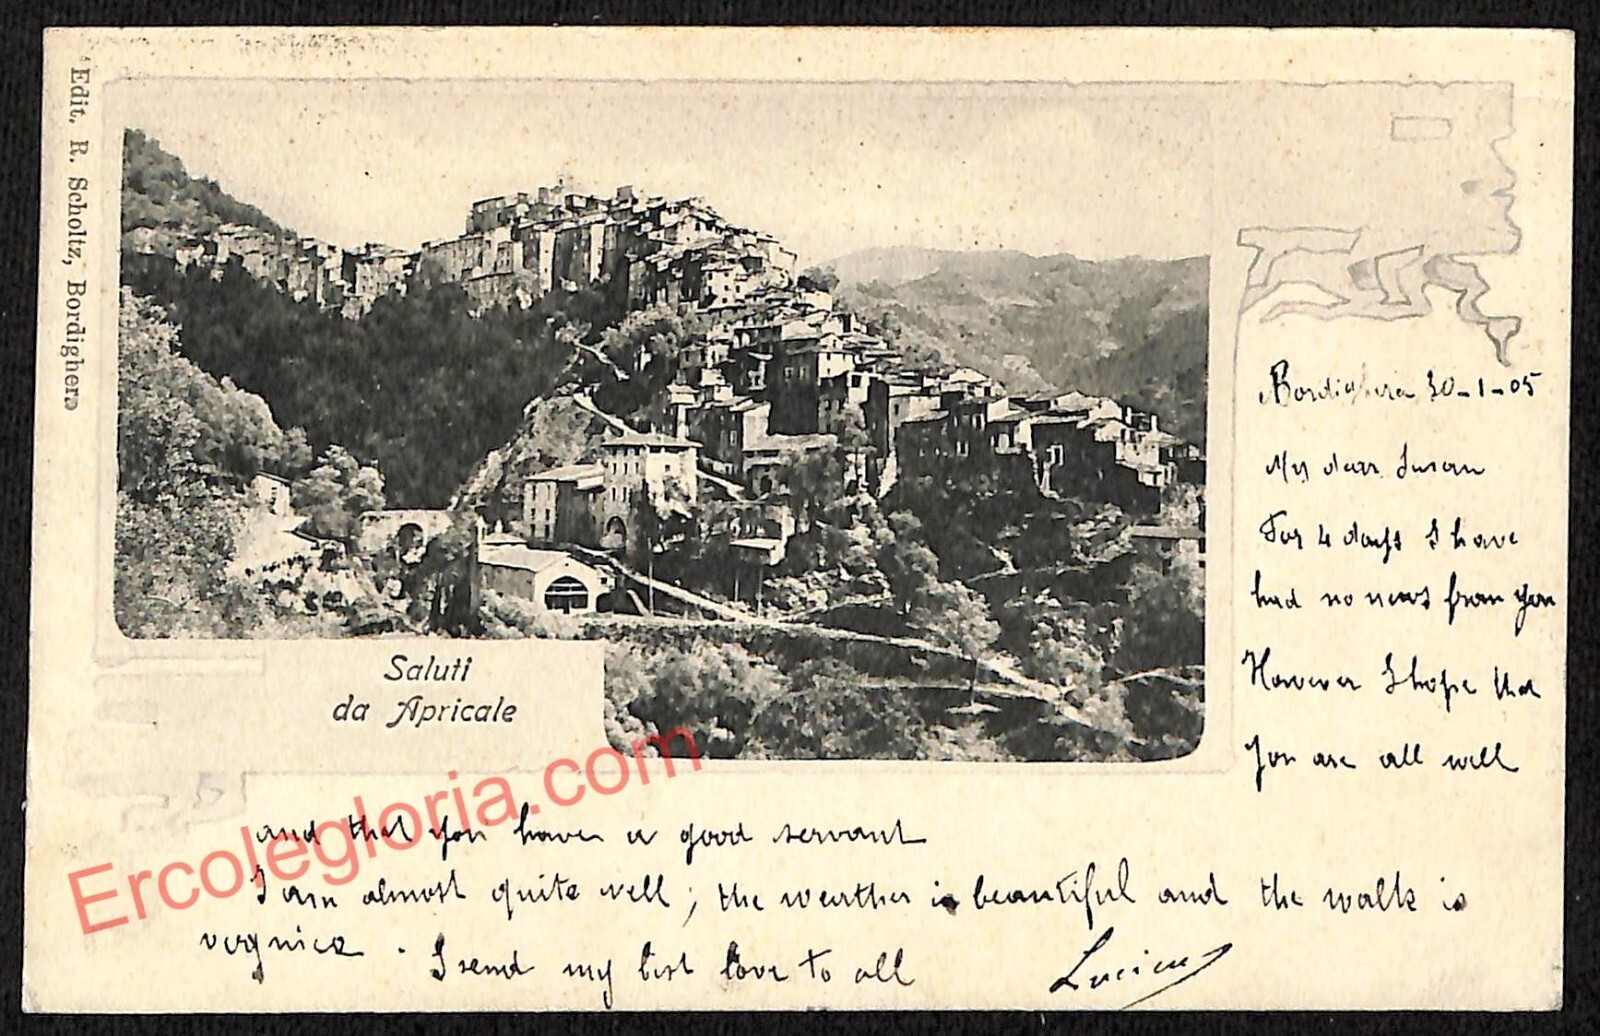 Edit. R. Scholtz, Bordighera
Saluti
da Apricale
Bordighera 30-1-05
My dear Susan
For 4 days I have
had no news from you
However I hope that
you are all well
and that you have a good servant
I am almost quite well; the weather is beautiful and the walk is
very nice. I send my best love to all
Lucien
Ercolegloria.com